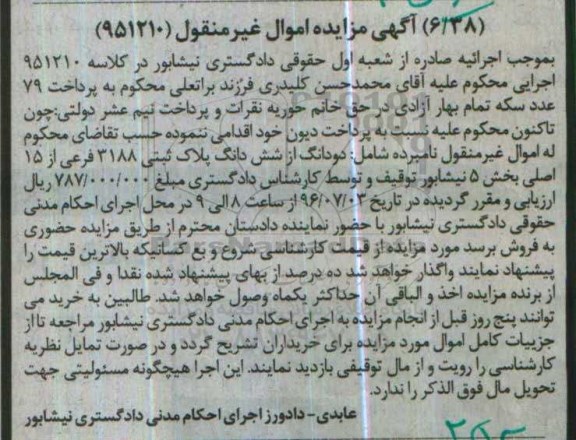 (۶/۳۸) آگهی مزایده اموال غیرمنقول (۹۵۱۲۱۰)
بموجب اجرائیه صادره از شعبه اول حقوقی دادگستری نیشابور در کلاسه ۹۵۱۲۱۰
اجرایی محکوم علیه آقای محمدحسن کلیدری فرزند براتعلی محکوم به پرداخت ۷۹
عدد سکه تمام بهار آزادی در حق خانم حوریه نقرات و پرداخت نیم عشر دولتی:چون
تاکنون محکوم علیه نسبت به پرداخت دیون خود اقدامی ننموده حسب تقاضای محکوم
له اموال غیرمنقول نامبرده شامل: دودانگ از شش دانگ پلاک ثبتی ۳۱۸۸ فرعی از ۱۵
اصلی بخش ۵ نیشابور توقیف و توسط کارشناس دادگستری مبلغ ۷۸۷/۰۰۰/۰۰۰ ریال
ارزیابی و مقرر گردیده در تاریخ ۹۶/۰۷/۰۳ از ساعت ۸ الی ۹ در محل اجرای احکام مدنی
حقوقی دادگستری نیشابور با حضور نماینده دادستان محترم از طریق مزایده حضوری
به فروش برسد مورد مزایده از قیمت کارشناسی شروع و بع کسانیکه بالاترین قیمت را
پیشنهاد نمایند واگذار خواهد شد ده درصد از بهای پیشنهاد شده نقدا و فی المجلس
از برنده مزایده اخذ و الباقی آن حداکثر یکماه وصول خواهد شد. طالبین به خرید می
توانند پنج روز قبل از انجام مزایده به اجرای احکام مدنی دادگستری نیشابور مراجعه تا از
جزییات کامل اموال مورد مزایده برای خریداران تشریح گردد و در صورت تمایل نظریه
کارشناسی را رویت و از مال توقیفی بازدید نمایند. این اجرا هیچگونه مسئولیتی جهت
تحویل مال فوق الذکر را ندارد.
عابدی- دادورز اجرای احکام مدنی دادگستری نیشابور